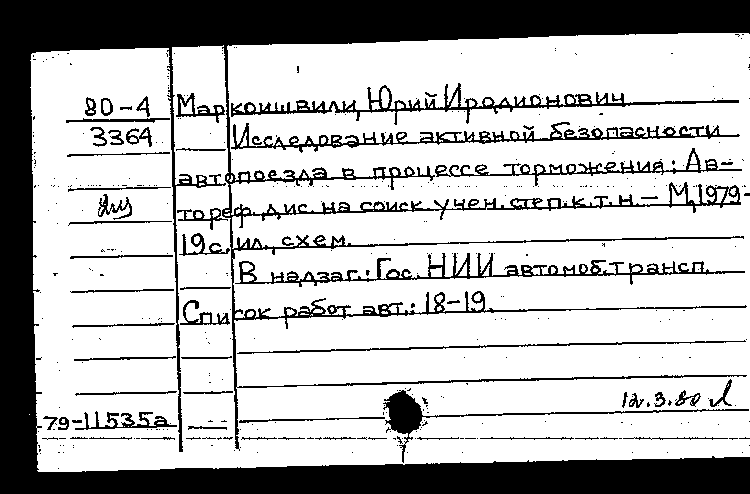 80-4 Маркоишвили, Юрий Иродионович
3364 Исследование активной безопасности
автопоезда в процессе торможения: Ав-
тореф. дис. на соиск. учен. степ. к. т. н. — М, 1979-
19 с. ил., схем.
В надзаг.: Гос. НИИ автомоб. трансп.
Список работ авт.: 18-19.
12.3.80
79-11535а